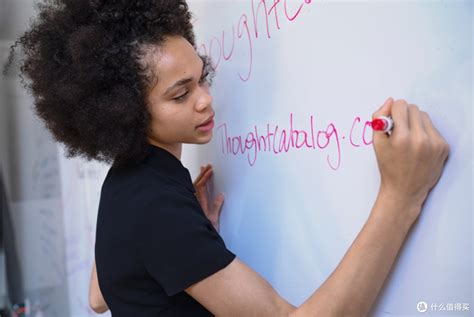 Though
Thoughtcatalog.co
什么值得买